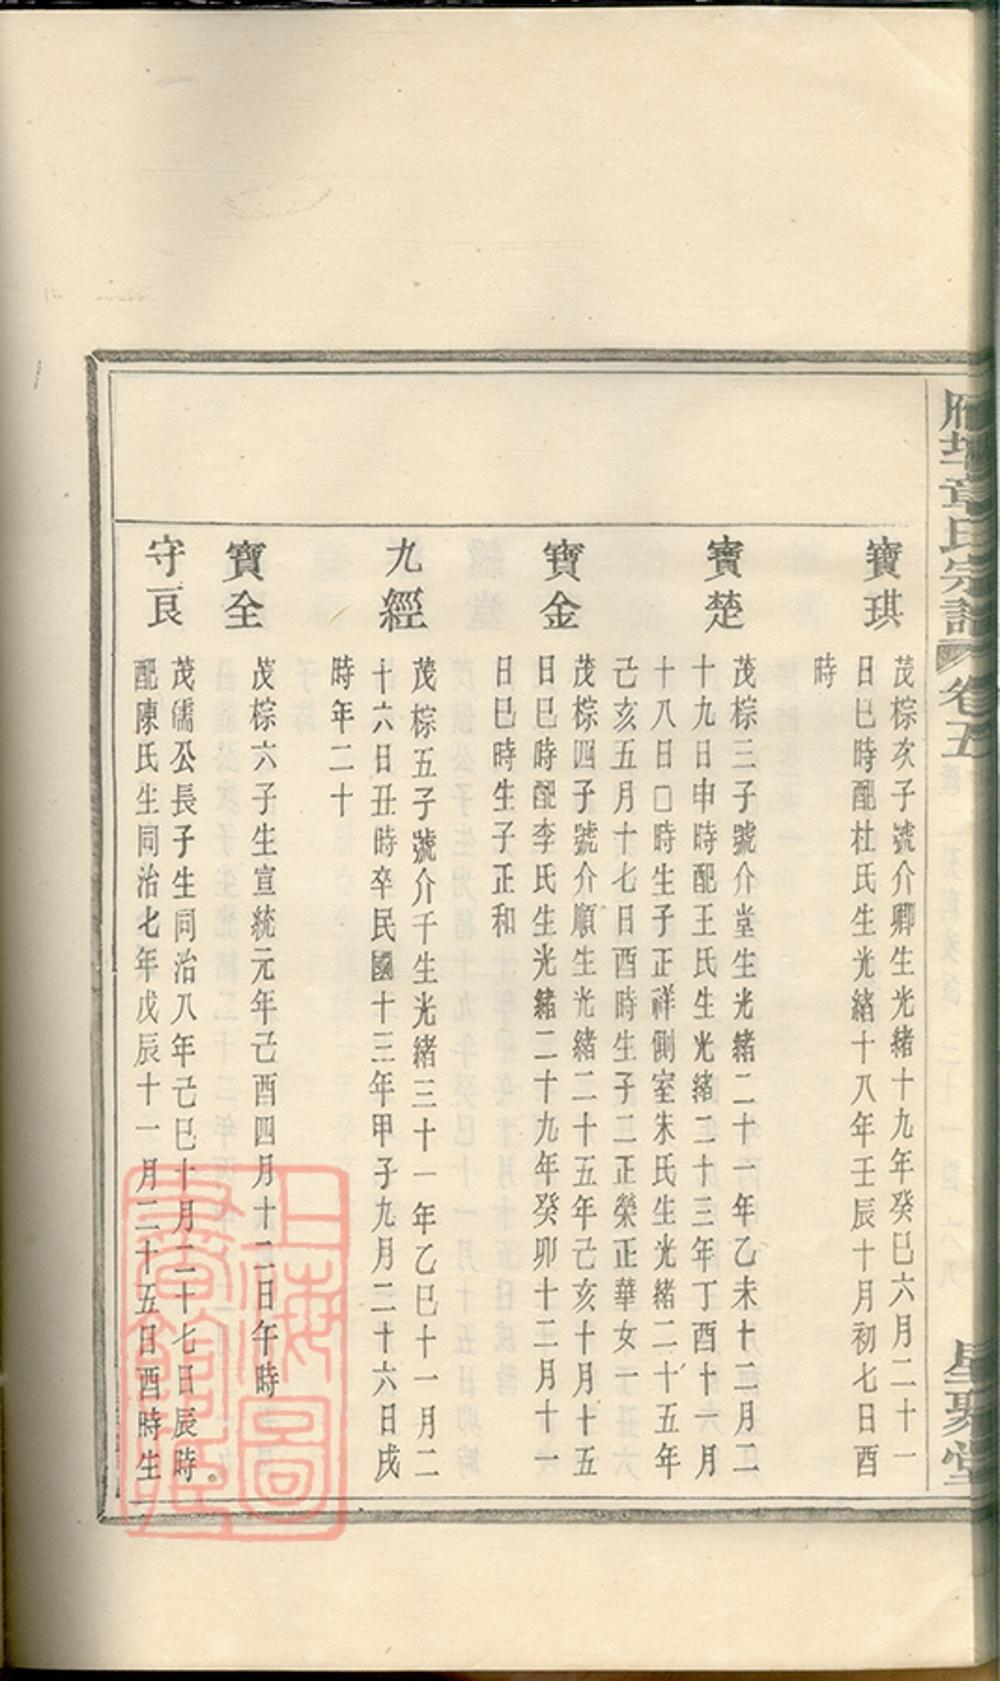 雁塔章氏宗譜 卷五 星聚堂
寶琪
茂棕次子號介卿生光緒十九年癸巳六月二十一
日巳時配杜氏生光緒十八年壬辰十月初七日酉
時
寶楚
茂棕三子號介堂生光緒二十一年乙未十二月二
十九日申時配王氏生光緒二十三年丁酉十一月
十八日□時生子正祥側室朱氏生光緒二十五年
己亥五月十七日酉時生子二正榮正華女一
寶金
茂棕四子號介順生光緒二十五年己亥十月十五
日巳時配李氏生光緒二十九年癸卯十二月十一
日巳時生子正和
九經
茂棕五子號介千生光緒三十一年乙巳十一月二
十六日丑時卒民國十三年甲子九月二十六日戌
時年二十
寶全
茂棕六子生宣統元年己酉四月十二日午時
守良
茂儒公長子生同治八年己巳十月二十七日辰時
配陳氏生同治七年戊辰十一月二十五日酉時生
上海圖
書館藏